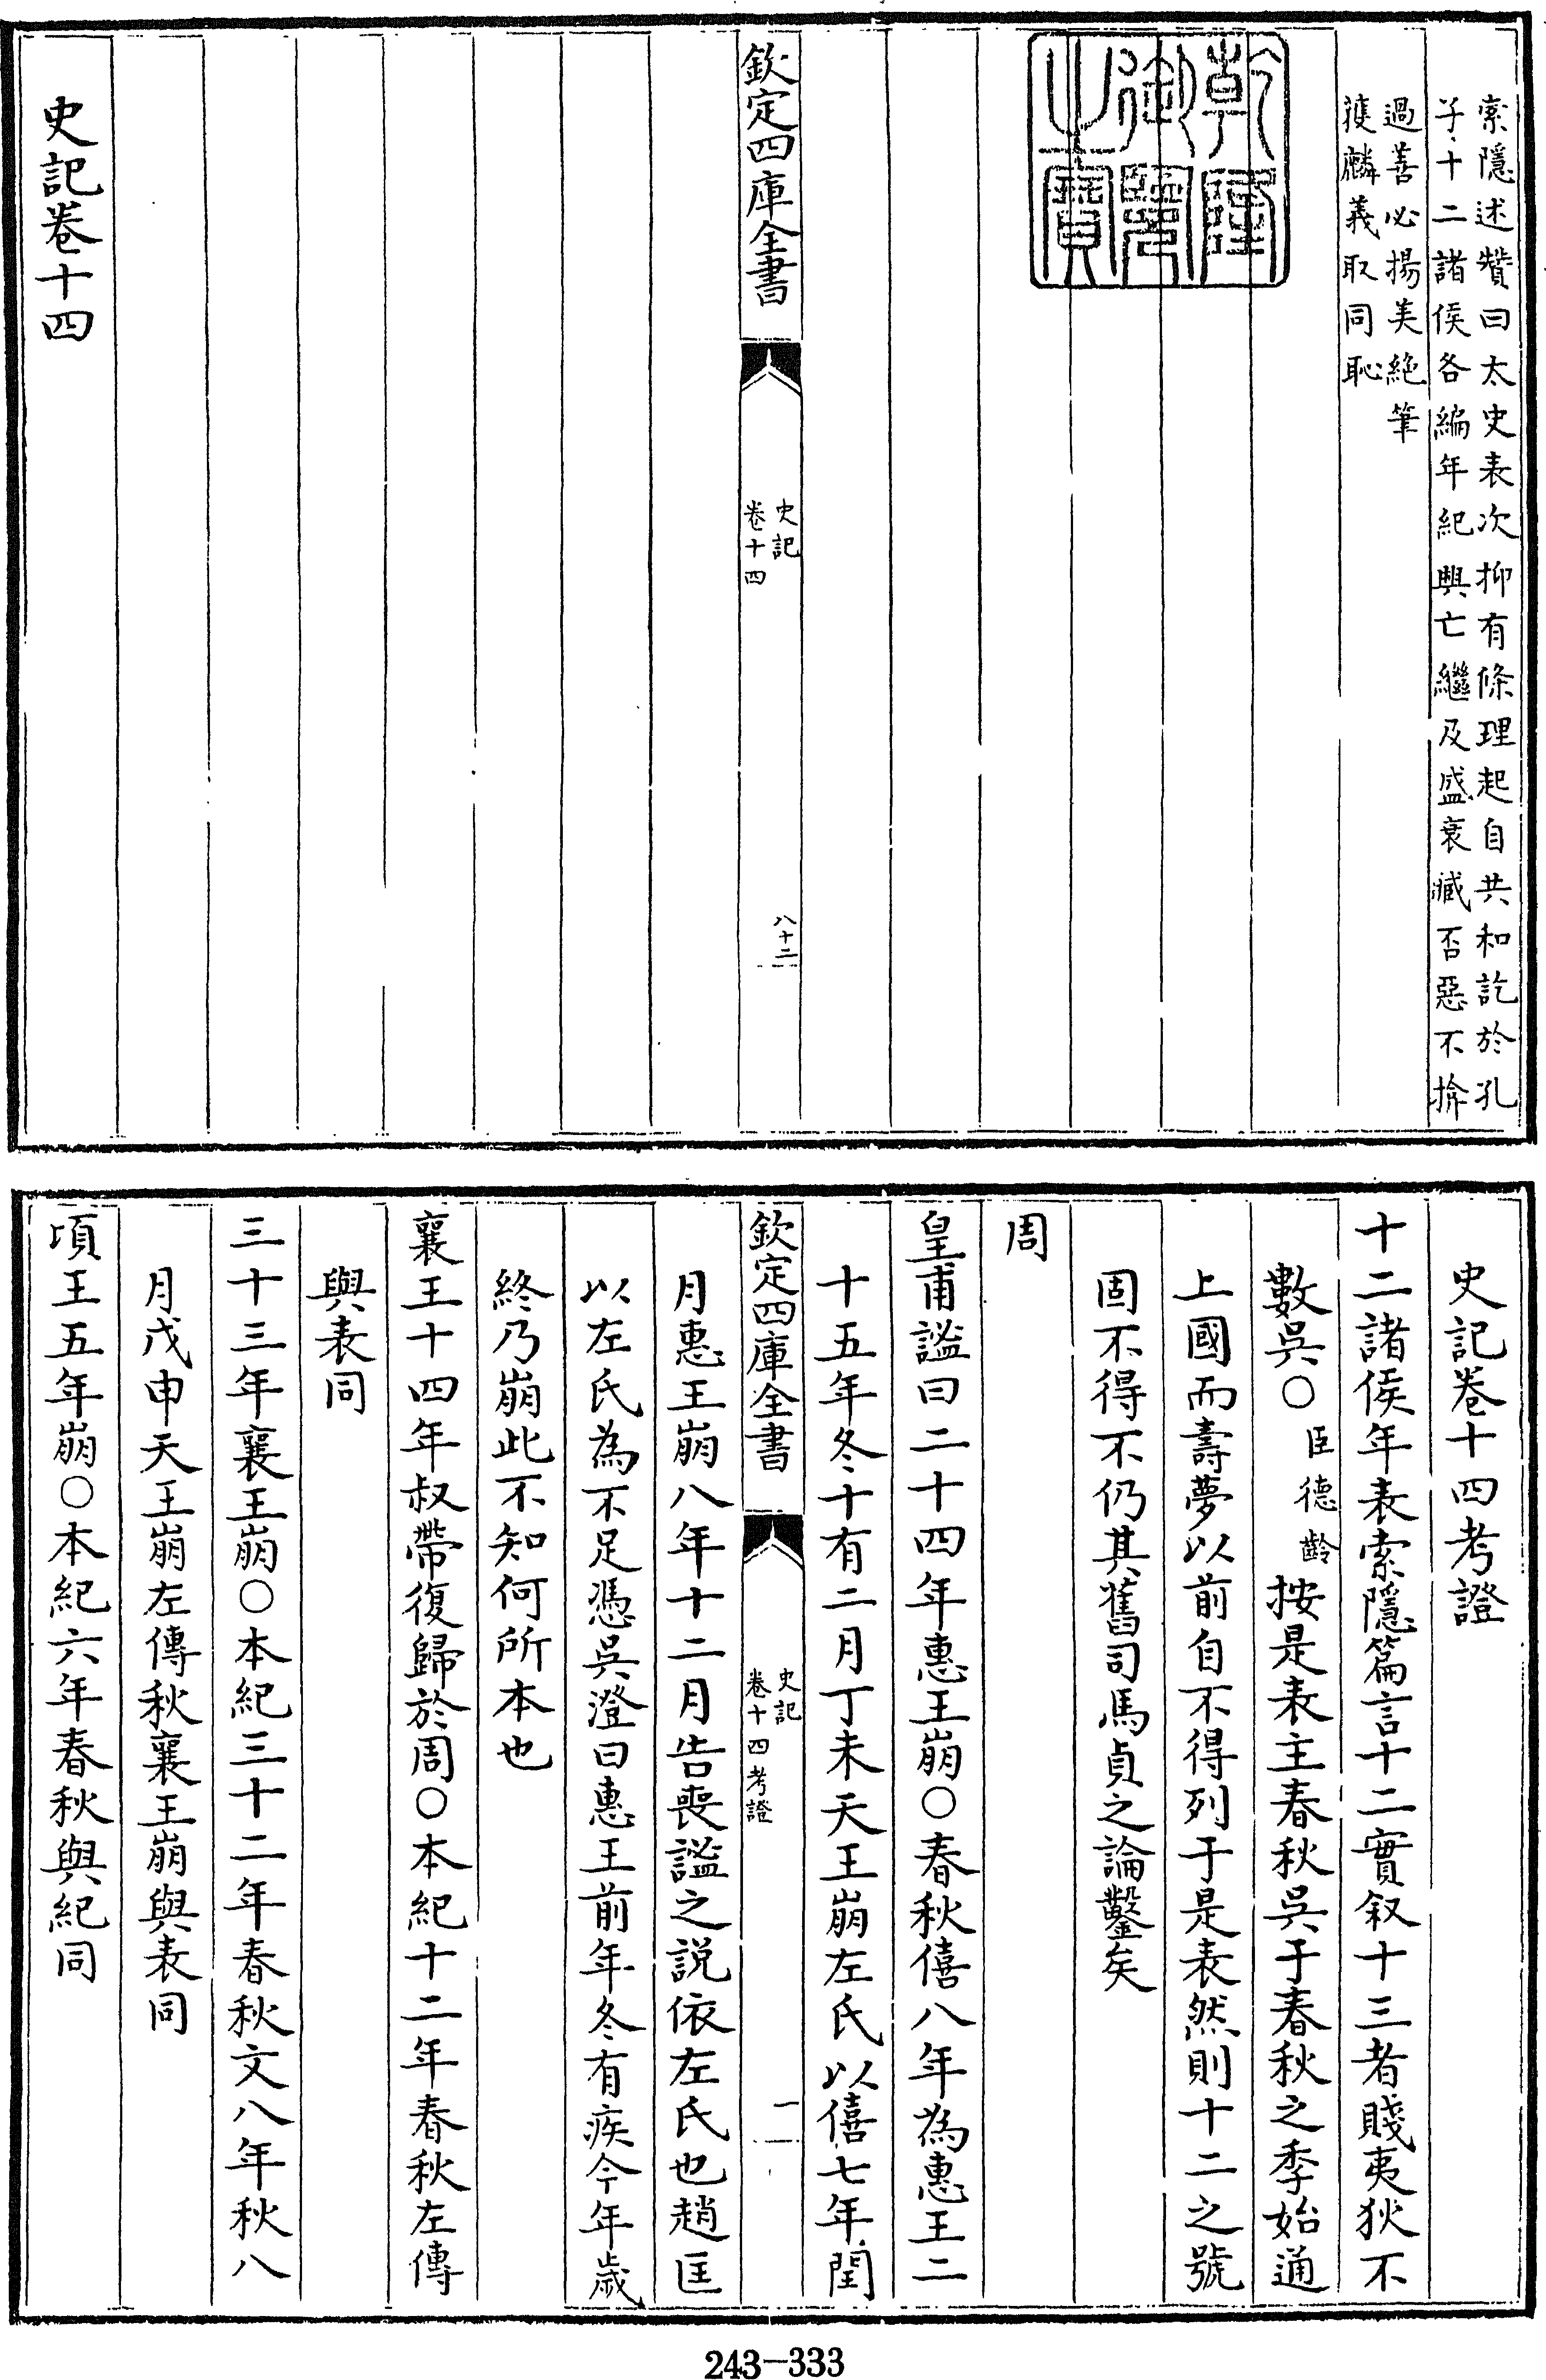 索隱述贊曰太史表次抑有條理起自共和訖於孔
子十二諸侯各編年紀興亡繼及盛衰臧否惡不揜
過善必揚美絶筆
獲麟義取同恥
乾隆御覽之寶
欽定四庫全書
史記
卷十四
八十二
史記卷十四
史記卷十四考證
十二諸侯年表索隱篇言十二實叙十三者賤夷狄不
數吳○臣德齡按是表主春秋吳于春秋之季始通
上國而壽夢以前自不得列于是表然則十二之號
固不得不仍其舊司馬貞之論鑿矣
周
皇甫謐曰二十四年惠王崩○春秋僖八年為惠王二
十五年冬十有二月丁未天王崩左氏以僖七年閏
欽定四庫全書
史記
卷十四考證
一
月惠王崩八年十二月告喪謐之説依左氏也趙匡
以左氏為不足憑吳澄曰惠王前年冬有疾今年歲
終乃崩此不知何所本也
襄王十四年叔帶復歸於周○本紀十二年春秋左傳
與表同
三十三年襄王崩○本紀三十二年春秋文八年秋八
月戊申天王崩左傳秋襄王崩與表同
頃王五年崩○本紀六年春秋與紀同
243-333